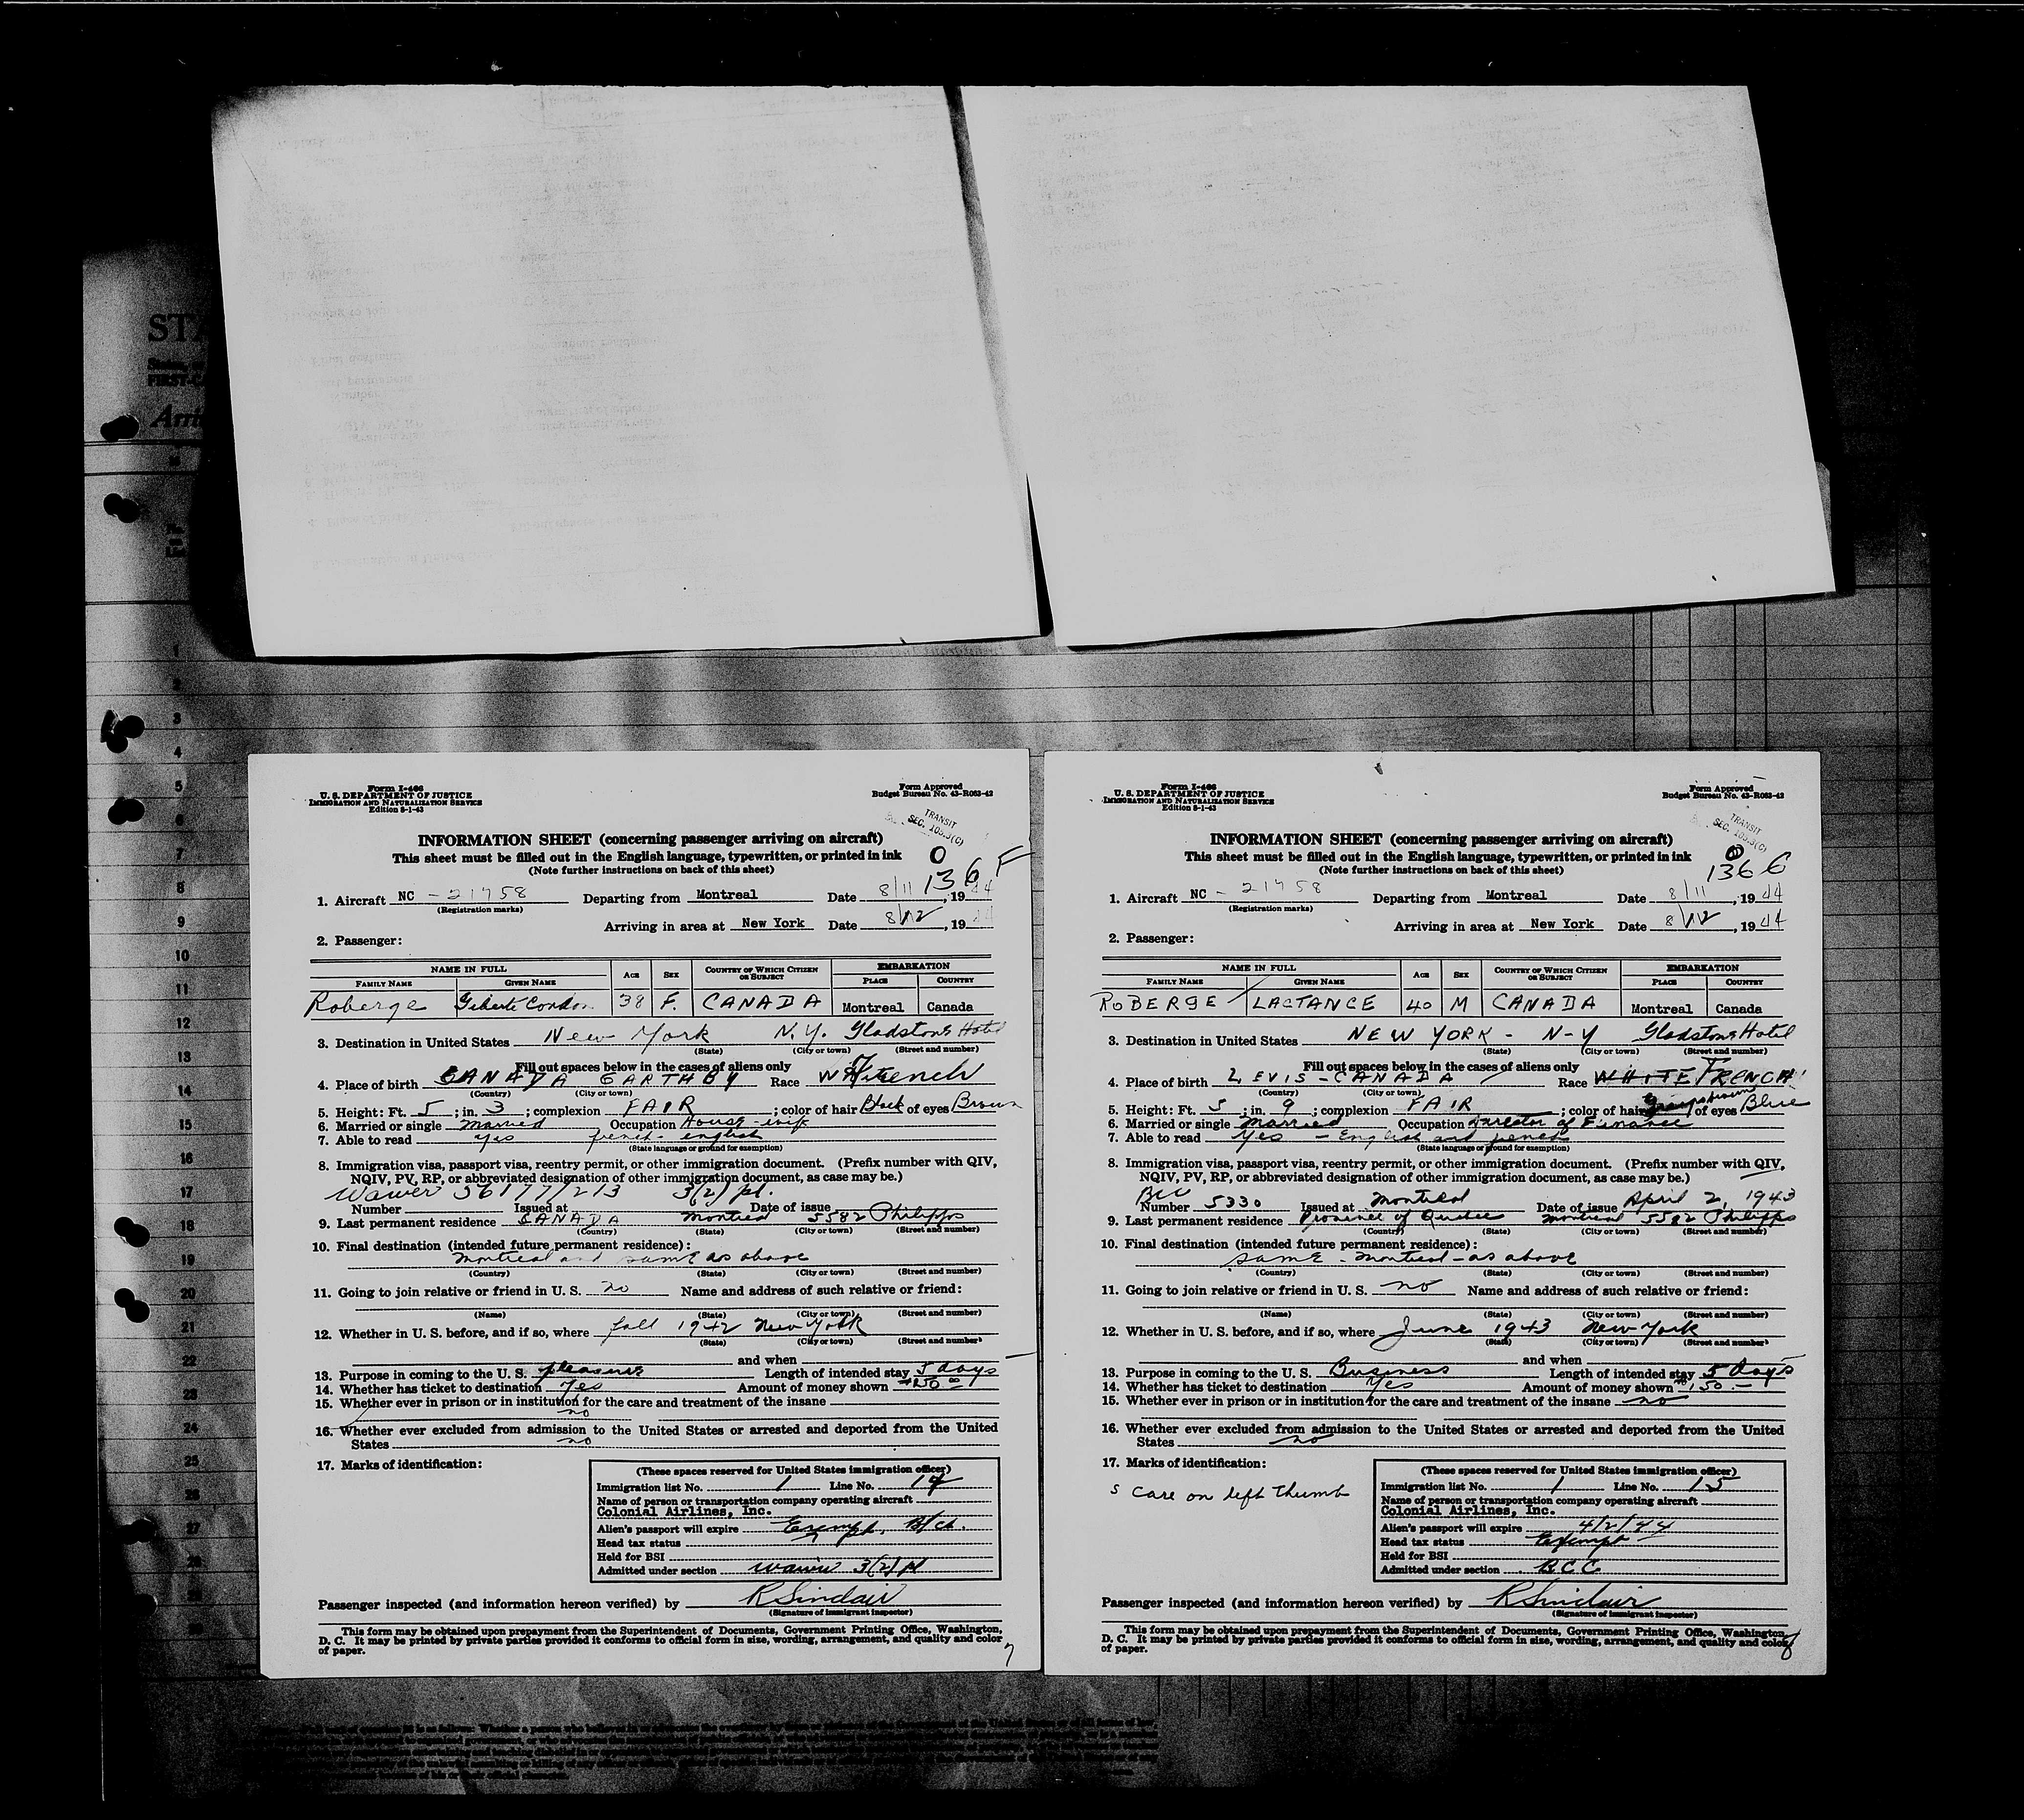 Form I-466
U. S. DEPARTMENT OF JUSTICE
IMMIGRATION AND NATURALIZATION SERVICE
Edition 8-1-43
Form Approved
Budget Bureau No. 43-R063-42
TRANSIT
SEC. 103.3(C)
INFORMATION SHEET (concerning passenger arriving on aircraft)
This sheet must be filled out in the English language, typewritten, or printed in ink
(Note further instructions on back of this sheet)
0
136 F
1. Aircraft NC - 21758 Departing from Montreal Date 8/11, 1944
(Registration marks)
Arriving in area at New York Date 8/12, 1944
2. Passenger:
NAME IN FULL AGE SEX COUNTRY OF WHICH CITIZEN OR SUBJECT EMBARKATION
FAMILY NAME GIVEN NAME PLACE COUNTRY
Roberge Condon 38 F. CANADA Montreal Canada
3. Destination in United States New York N.Y. Gladstone Hotel
(State) (City or town) (Street and number)
Fill out spaces below in the cases of aliens only
4. Place of birth CANADA EARTHBY Race White French
(Country) (City or town)
5. Height: Ft. 5; in. 3; complexion FAIR; color of hair Black of eyes Brown
6. Married or single Married Occupation House-wife
7. Able to read yes french - english
(State language or ground for exemption)
8. Immigration visa, passport visa, reentry permit, or other immigration document. (Prefix number with QIV,
NQIV, PV, RP, or abbreviated designation of other immigration document, as case may be.)
Waiver 56177/213 3(2) pl.
Number Issued at Date of issue
9. Last permanent residence CANADA Montreal 5582 Philipps
(Country) (State) (City or town) (Street and number)
10. Final destination (intended future permanent residence):
Montreal and same as above
(Country) (State) (City or town) (Street and number)
11. Going to join relative or friend in U. S. no Name and address of such relative or friend:
(Name) (State) (City or town) (Street and number)
12. Whether in U. S. before, and if so, where fall 1942 New York
(State) (City or town) (Street and number)
and when
13. Purpose in coming to the U. S. pleasure Length of intended stay 5 days
14. Whether has ticket to destination Yes Amount of money shown $150.00
15. Whether ever in prison or in institution for the care and treatment of the insane
no
16. Whether ever excluded from admission to the United States or arrested and deported from the United
States no
17. Marks of identification:
(These spaces reserved for United States immigration officer)
Immigration list No. 1 Line No. 14
Name of person or transportation company operating aircraft
Colonial Airlines, Inc.
Alien's passport will expire Exempt. B/Ct.
Head tax status
Held for BSI
Admitted under section Waiver 3(2) pl
Passenger inspected (and information hereon verified) by R Sinclair
(Signature of immigrant inspector)
This form may be obtained upon prepayment from the Superintendent of Documents, Government Printing Office, Washington,
D. C. It may be printed by private parties provided it conforms to official form in size, wording, arrangement, and quality and color
of paper.
7
Form I-466
U. S. DEPARTMENT OF JUSTICE
IMMIGRATION AND NATURALIZATION SERVICE
Edition 8-1-43
Form Approved
Budget Bureau No. 43-R063-42
TRANSIT
SEC. 103.3(C)
INFORMATION SHEET (concerning passenger arriving on aircraft)
This sheet must be filled out in the English language, typewritten, or printed in ink
(Note further instructions on back of this sheet)
0
136 6
1. Aircraft NC - 21758 Departing from Montreal Date 8/11, 1944
(Registration marks)
Arriving in area at New York Date 8/12, 1944
2. Passenger:
NAME IN FULL AGE SEX COUNTRY OF WHICH CITIZEN OR SUBJECT EMBARKATION
FAMILY NAME GIVEN NAME PLACE COUNTRY
ROBERGE LACTANCE 40 M CANADA Montreal Canada
3. Destination in United States NEW YORK - N-Y Gladstone Hotel
(State) (City or town) (Street and number)
Fill out spaces below in the cases of aliens only
4. Place of birth LEVIS - CANADA Race WHITE FRENCH
(Country) (City or town)
5. Height: Ft. 5; in. 9; complexion FAIR; color of hair of eyes Blue
6. Married or single Married Occupation Director of Finance
7. Able to read Yes - English and french
(State language or ground for exemption)
8. Immigration visa, passport visa, reentry permit, or other immigration document. (Prefix number with QIV,
NQIV, PV, RP, or abbreviated designation of other immigration document, as case may be.)
BCC
Number 5330 Issued at Montreal Date of issue April 2, 1943
9. Last permanent residence Province of Quebec Montreal 5582 Philipps
(Country) (State) (City or town) (Street and number)
10. Final destination (intended future permanent residence):
same - Montreal - as above
(Country) (State) (City or town) (Street and number)
11. Going to join relative or friend in U. S. no Name and address of such relative or friend:
(Name) (State) (City or town) (Street and number)
12. Whether in U. S. before, and if so, where June 1943 New York
(State) (City or town) (Street and number)
and when
13. Purpose in coming to the U. S. Business Length of intended stay 5 days
14. Whether has ticket to destination Yes Amount of money shown $150.-
15. Whether ever in prison or in institution for the care and treatment of the insane no
16. Whether ever excluded from admission to the United States or arrested and deported from the United
States no
17. Marks of identification:
s care on left thumb
(These spaces reserved for United States immigration officer)
Immigration list No. 1 Line No. 15
Name of person or transportation company operating aircraft
Colonial Airlines, Inc.
Alien's passport will expire 4/2/44
Head tax status Exempt
Held for BSI
Admitted under section BCC
Passenger inspected (and information hereon verified) by R Sinclair
(Signature of immigrant inspector)
This form may be obtained upon prepayment from the Superintendent of Documents, Government Printing Office, Washington,
D. C. It may be printed by private parties provided it conforms to official form in size, wording, arrangement, and quality and color
of paper.
8